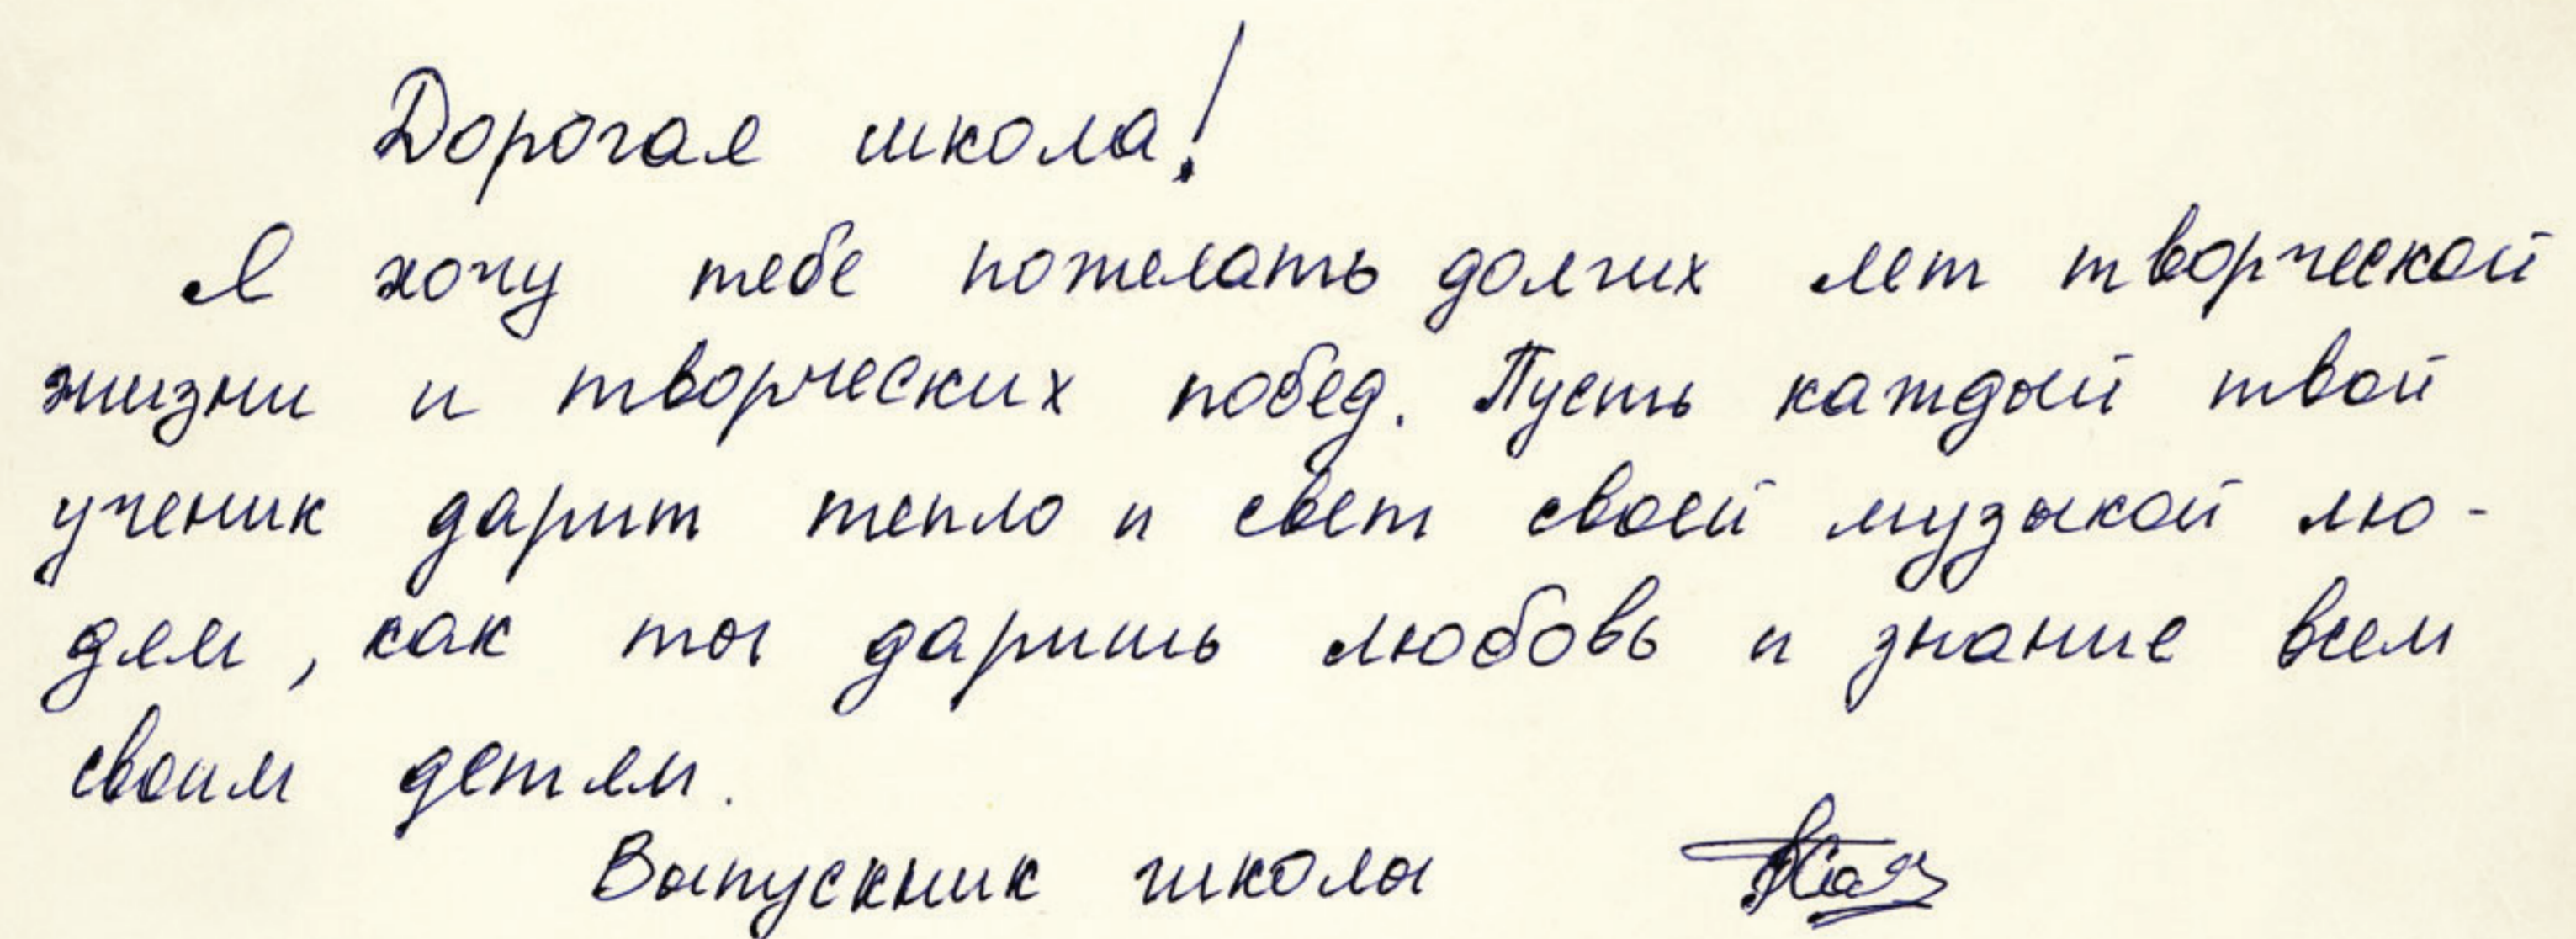 Дорогая школа!
Я хочу тебе пожелать долгих лет творческой
жизни и творческих побед. Пусть каждый твой
ученик дарит тепло и свет своей музыкой лю-
дям, как ты даришь любовь и знание всем
своим детям.
Выпускник школы